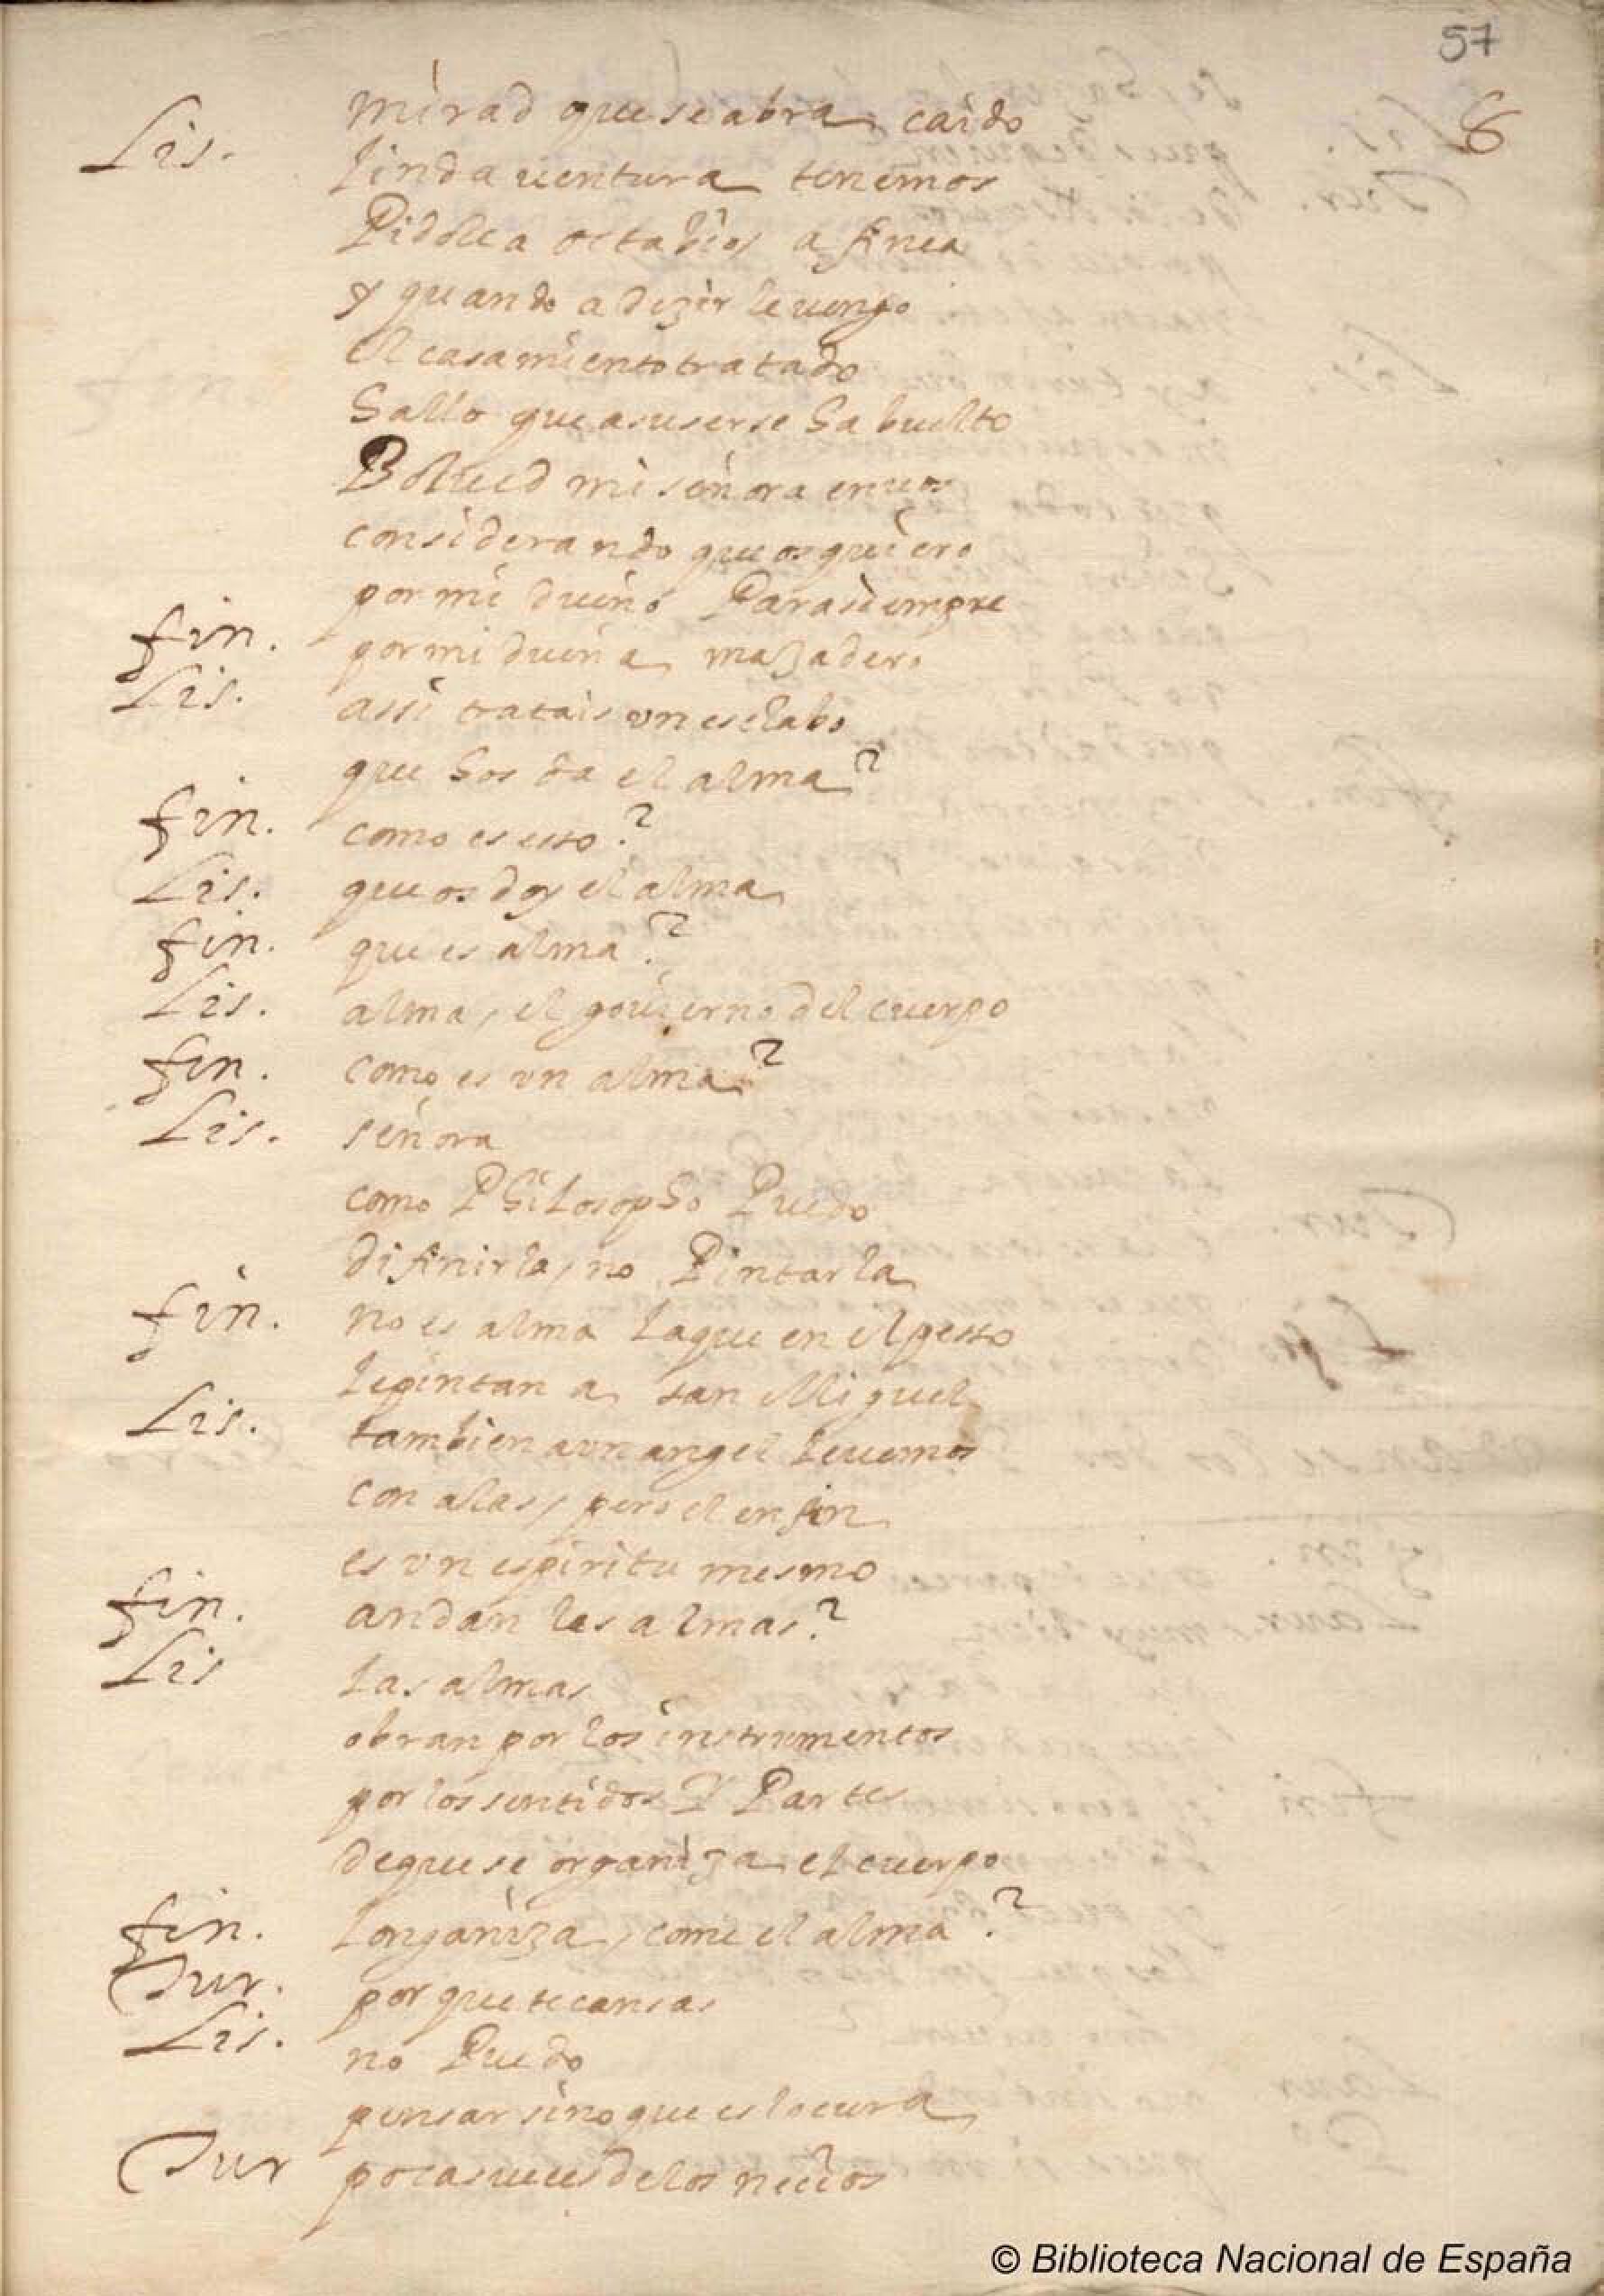 57
6
mirad que se abra caido
Lis. linda uentura tenemos
Pidole a octabio, a finea
y quando a dezir le uengo
el casamiento tratado
hallo que a su ser se ha buelto
Bolued mi señora en uos
considerando que os quiero
por mi dueño Para siempre
fin. por mi dueña, majadero
Lis. assi tratais vn esclabo
que hos da el alma?
fin. como es esso?
Lis. que os doy el alma
fin. que es alma?
Lis. alma, el gouierno del cuerpo
fin. como es vn alma?
Lis. señora
como Philosopho Puedo
difinirla, no Pintarla
fin. no es alma la que en el pesso
le pintan a san Miguel
Lis. tambien a vn angel le uemos
con alas, pero el en fin
es vn espiritu mesmo
fin. andan las almas?
Lis las almas
obran por los instrumentos
por los sentidos Y Partes
de que se organiza el cuerpo
fin. Longaniza, come el alma?
Tur. por que te cansas
Lis. no Puedo
pensar sino que es locura
Tur pocas ueces de los necios
© Biblioteca Nacional de España